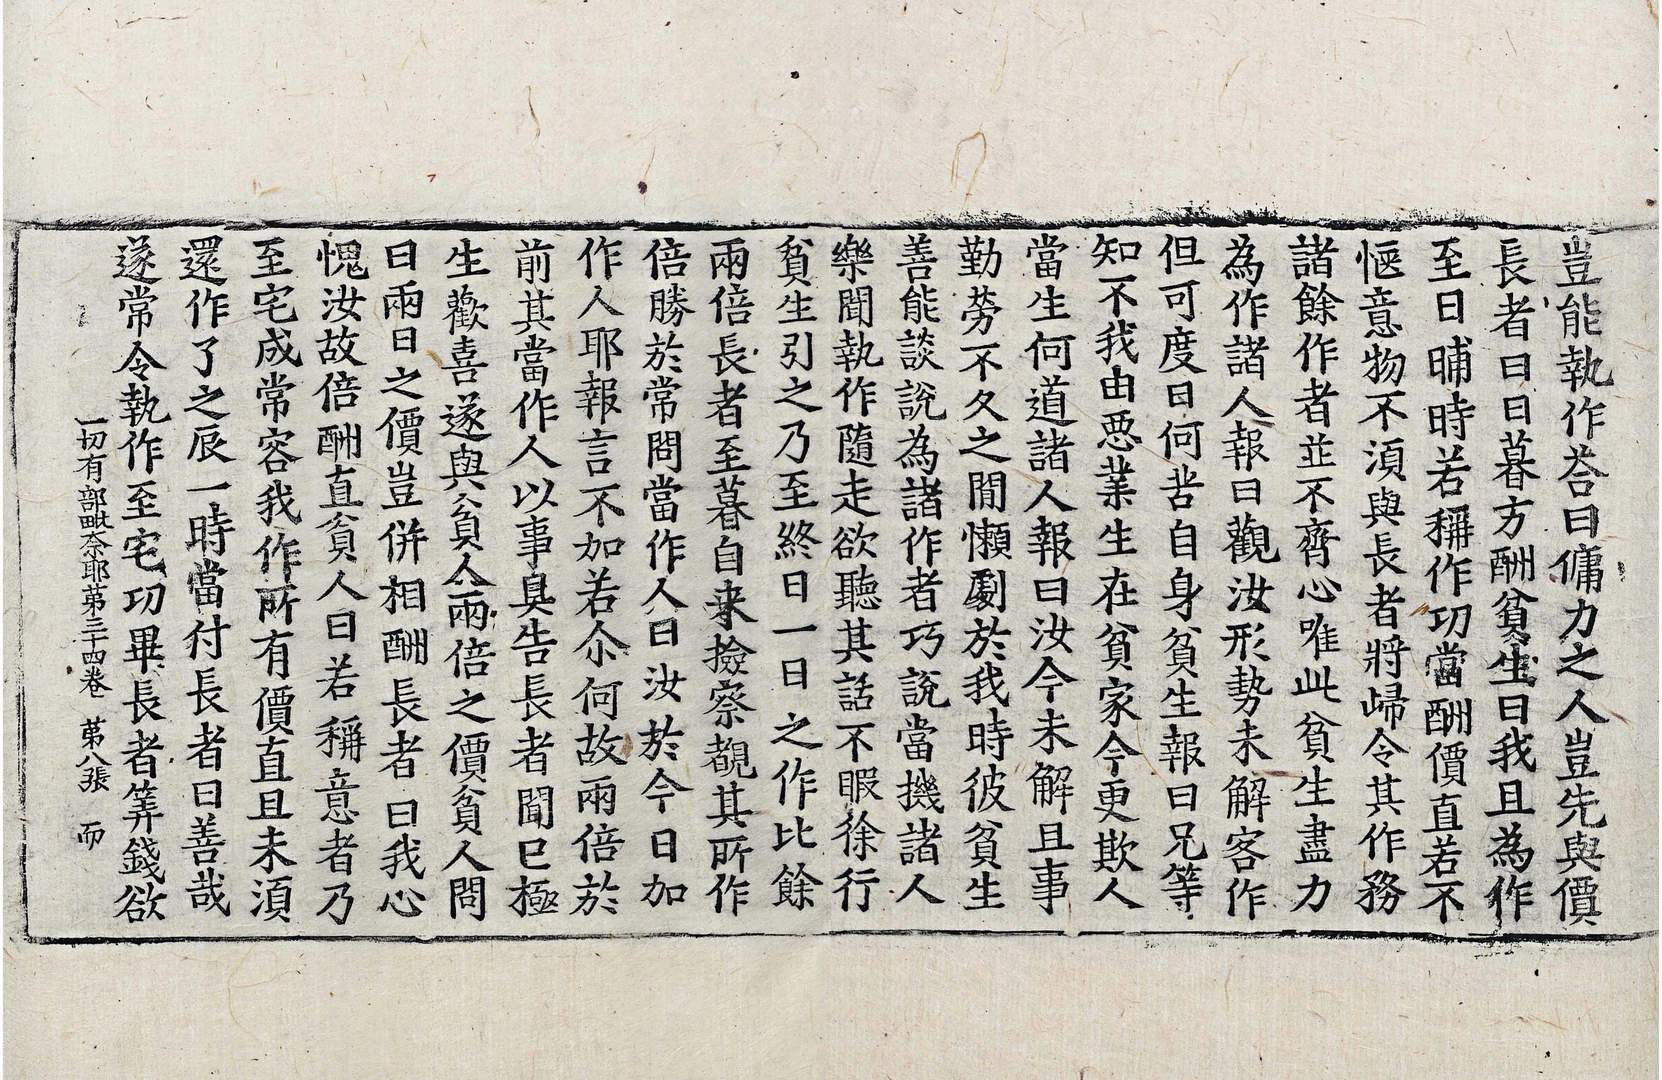 豈能執作荅曰傭力之人豈先與價
長者曰日暮方酬貧生曰我且為作
至日晡時若稱作功當酬價直若不
惬意物不湏與長者將歸令其作務
諸餘作者並不齊心唯此貧生盡力
為作諸人報曰觀汝形勢未解客作
但可度日何苦自身貧生報曰兄等
知不我由惡業生在貧家今更欺人
當生何道諸人報曰汝今未解且事
勤勞不久之間懶劇於我時彼貧生
善能談說為諸作者巧說當機諸人
樂聞執作隨走欲聽其話不暇徐行
貧生引之乃至終日一日之作比餘
兩倍長者至暮自来撿察覩其所作
倍勝於常問當作人曰汝於今日加
作人耶報言不加若尒何故兩倍於
前其當作人以事具告長者聞已極
生歡喜遂與貧人兩倍之價貧人問
曰兩日之價豈併相酬長者曰我心
愧汝故倍酬直貧人曰若稱意者乃
至宅成常容我作所有價直且未湏
還作了之辰一時當付長者曰善哉
遂常令執作至宅功畢長者筭錢欲
一切有部毗奈耶第三十四卷 第八張 而